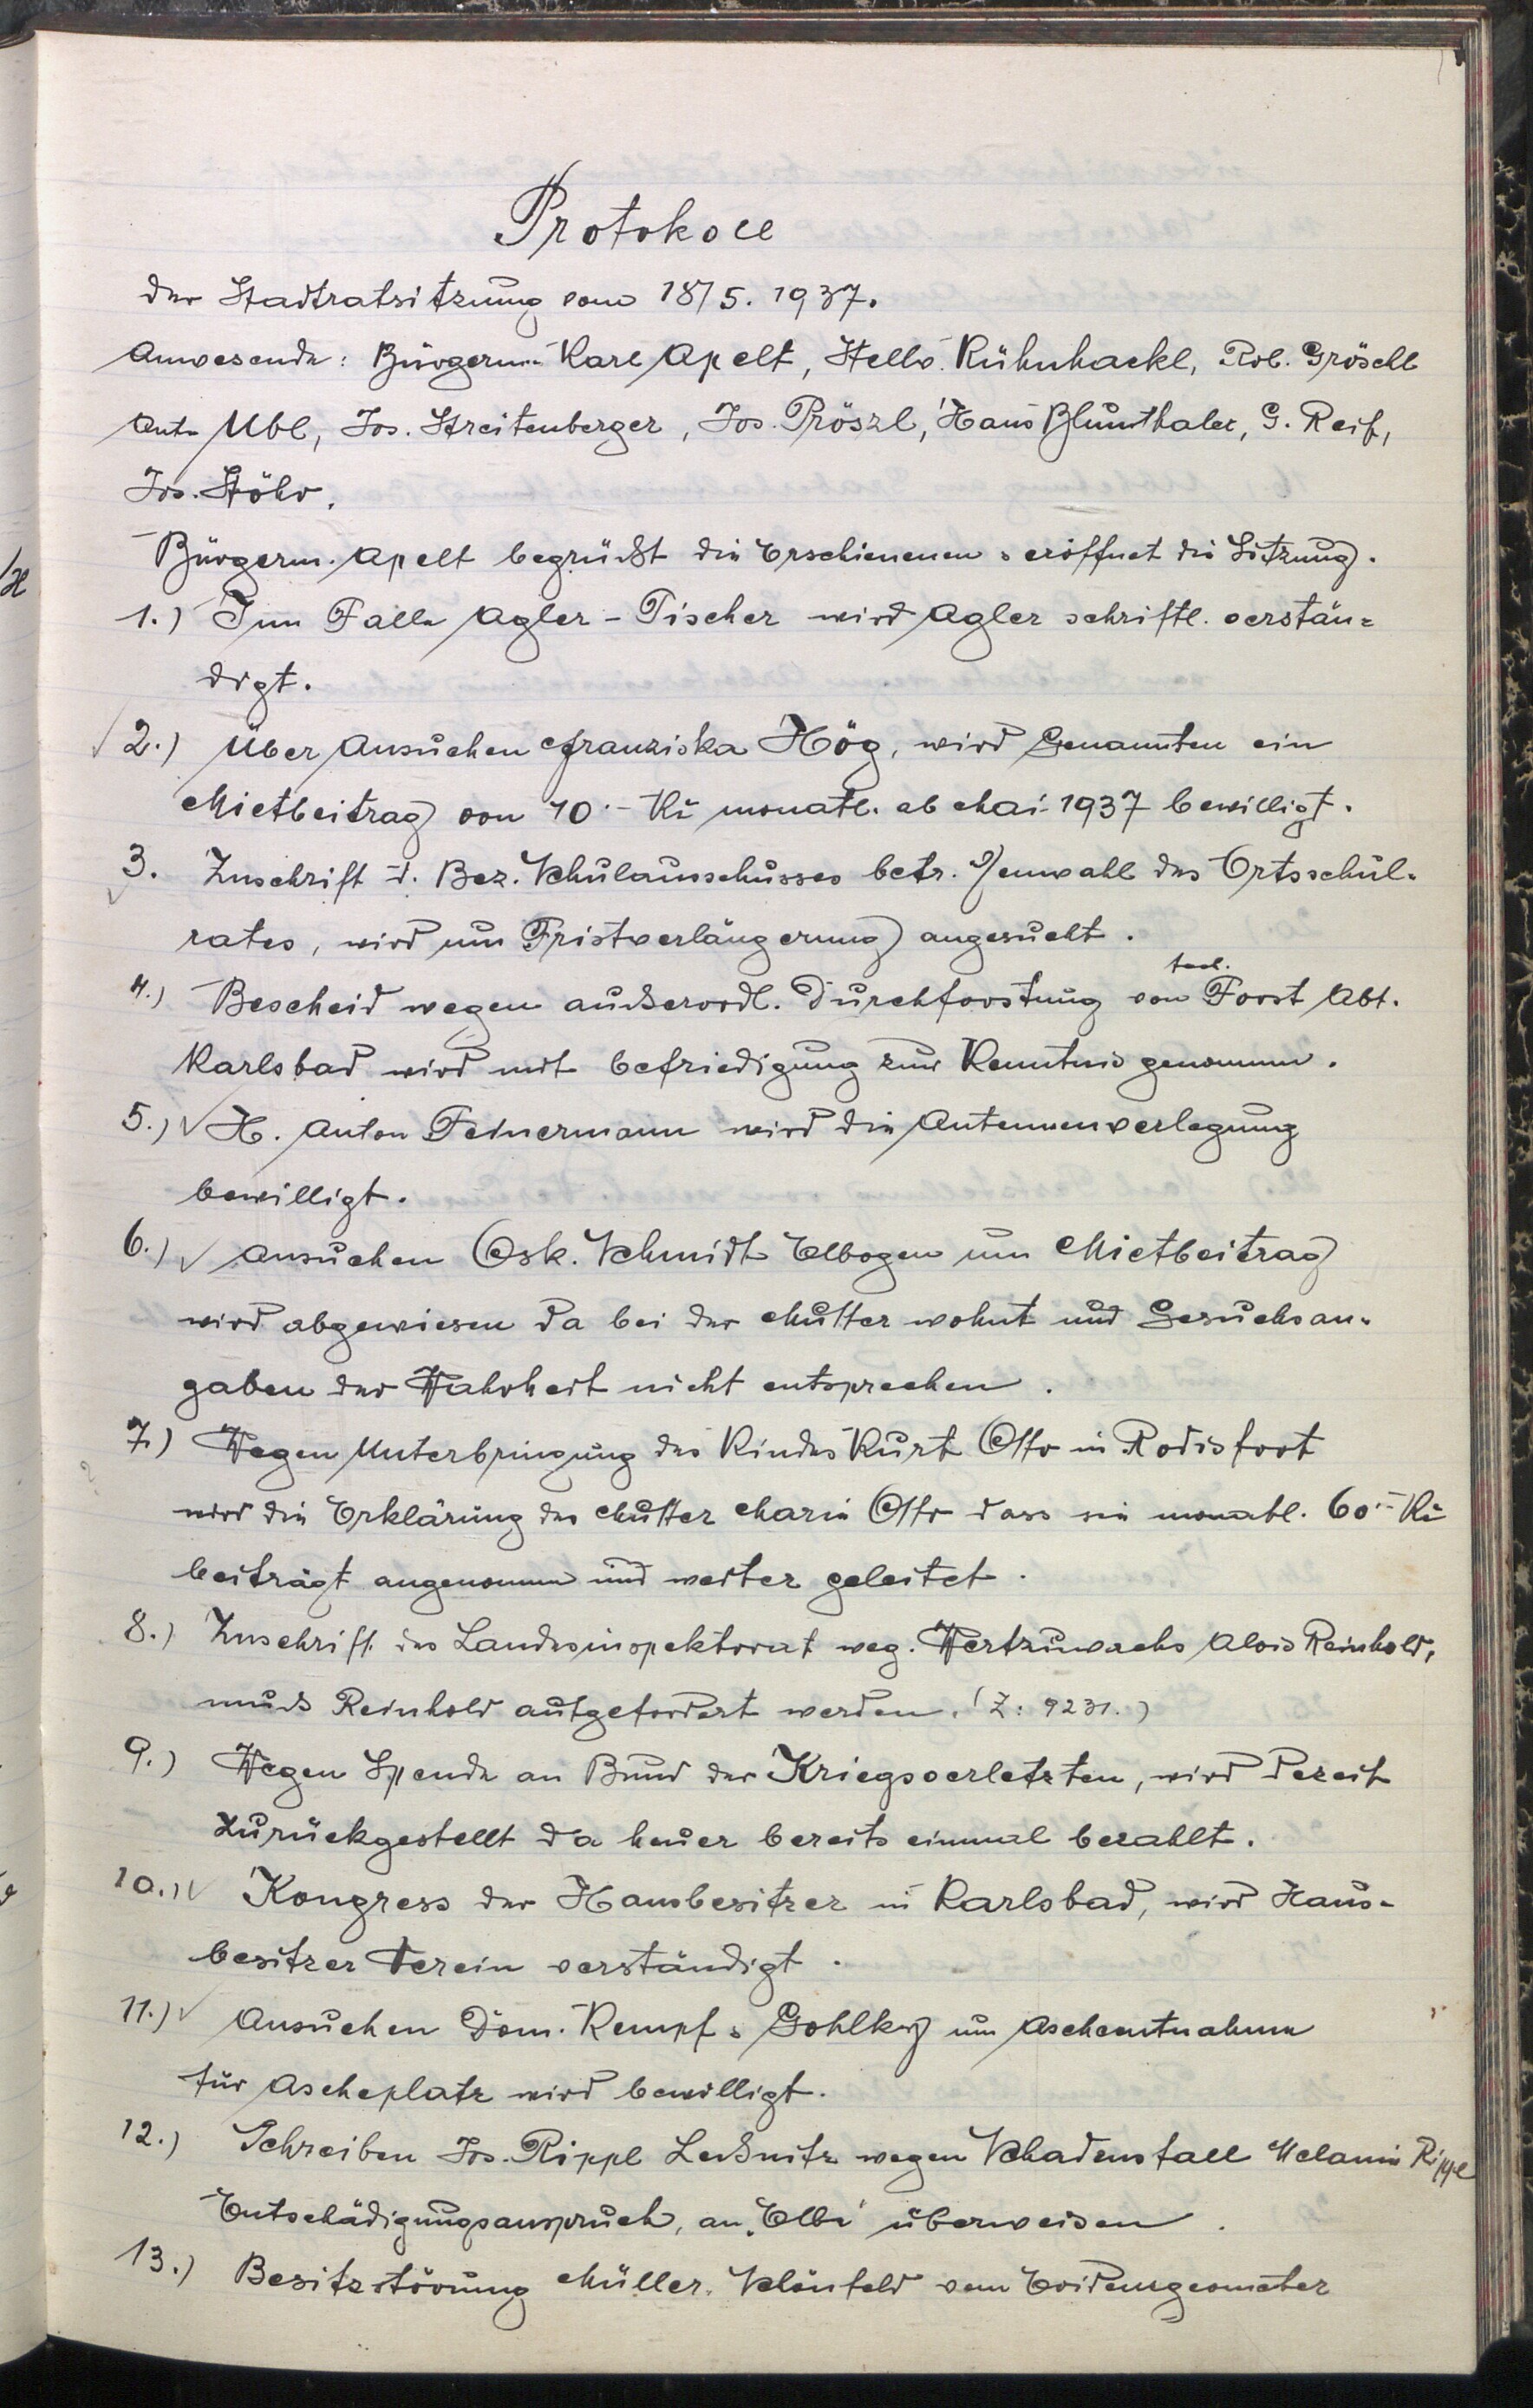 Protokoll
der Stadtratsitzung vom 18/5. 1937.
Anwesende: Bürgerm. Karl Apelt, Stellv. Kühnhackl, Rob. Gröschl
Ant. Ubl, Jos. Streitenberger, Jos. Pröszl, Hans Blumthaler, G. Reif,
Jos. Stöhr.
Bürgerm. Apelt begrüßt die Erschienenen u eröffnet die Sitzung.
1.) Im Falle Agler - Tischer wird Agler schriftl. verstän=
digt.
2.) Über Ansuchen Franziska Hög, wird Genannten ein
Mietbeitrag von 10.- Kč monatl. ab Mai 1937 bewilligt.
3. Zuschrift d. Bez. Schulausschusses betr. Neuwahl des Ortsschul-
rates, wird um Fristverlängerung angesucht.
4.) Bescheid wegen außerordl. Durchforstung von tech. Forst Abt.
Karlsbad wird mit befriedigung zur Kenntnis genommen.
5.) H. Anton Feinermann wird die Antennenverlegung
bewilligt.
6.) Ansuchen Osk. Schmidt Elbogen um Mietbeitrag
wird abgewiesen da bei der Mutter wohnt und Gesuchsan-
gaben der Wahrheit nicht entsprechen.
7.) Wegen Unterbringung des Kindes Kurt Otto in Rodisfort
wird die Erklärung der Mutter Marie Otto dass sie monatl. 60.- Kč
beiträgt angenommen und weiter geleitet.
8.) Zuschrift des Landesinspektorat weg. Wertzuwachs Alois Reinhold,
muß Reinhold aufgefordert werden. (Z: 9231.)
9.) Wegen Spende an Bund der Kriegsverletzten, wird derzeit
zurückgestellt da heuer bereits einmal bezahlt.
10.) Kongress der Hausbesitzer in Karlsbad, wird Haus-
besitzer Verein verständigt.
11.) Ansuchen Dom. Kempf u Gohlky um Ascheentnahme
für Ascheplatz wird bewilligt.
12.) Schreiben Jos. Rippl Leßnitz wegen Schadensfall Melanie Rippl
Entschädigungsanspruch, an "Elbe" überweisen.
13.) Besitzstörung Müller. Schönfeld vom Evidenzgeometer